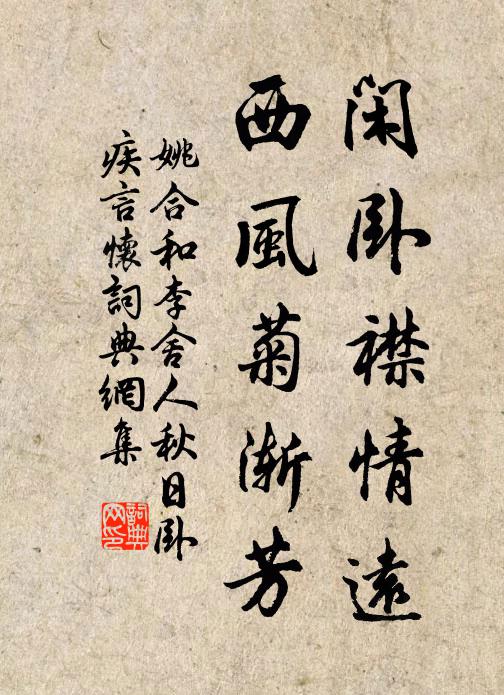 閑卧襟情遠
西風菊漸芳
姚合和李舍人秋日卧
疾言懷詞典網集
詞典
網印